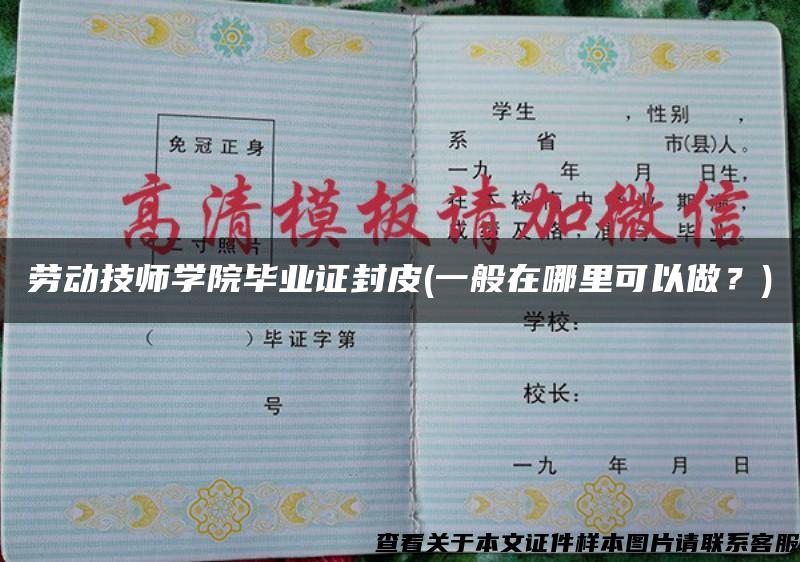 学生 ，性别 ，
系 省 市(县)人。
免冠正身
一九 年 月 日生，
高清模板请加微信
劳动技师学院毕业证封皮(一般在哪里可以做？)
学校：
（ ）毕证字第
校长：
号
一九 年 月 日
查看关于本文证件样本图片请联系客服